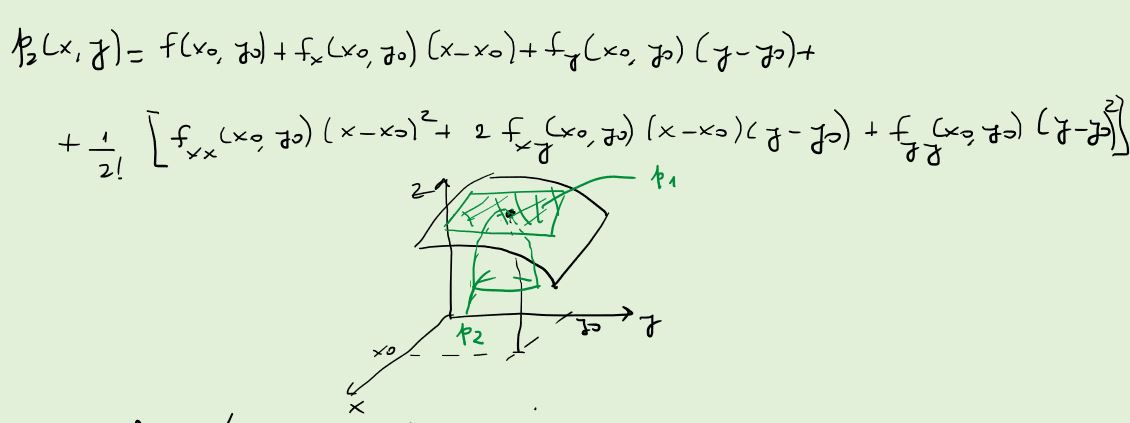 p₂(x, y) = f(x₀, y₀) + fₓ(x₀, y₀) (x-x₀) + f_y(x₀, y₀) (y-y₀) +
+ 1/2! [f_xx(x₀, y₀) (x-x₀)² + 2 f_xy(x₀, y₀) (x-x₀)(y-y₀) + f_yy(x₀, y₀) (y-y₀)²]
z
p₁
y₀
y
p₂
x₀
x